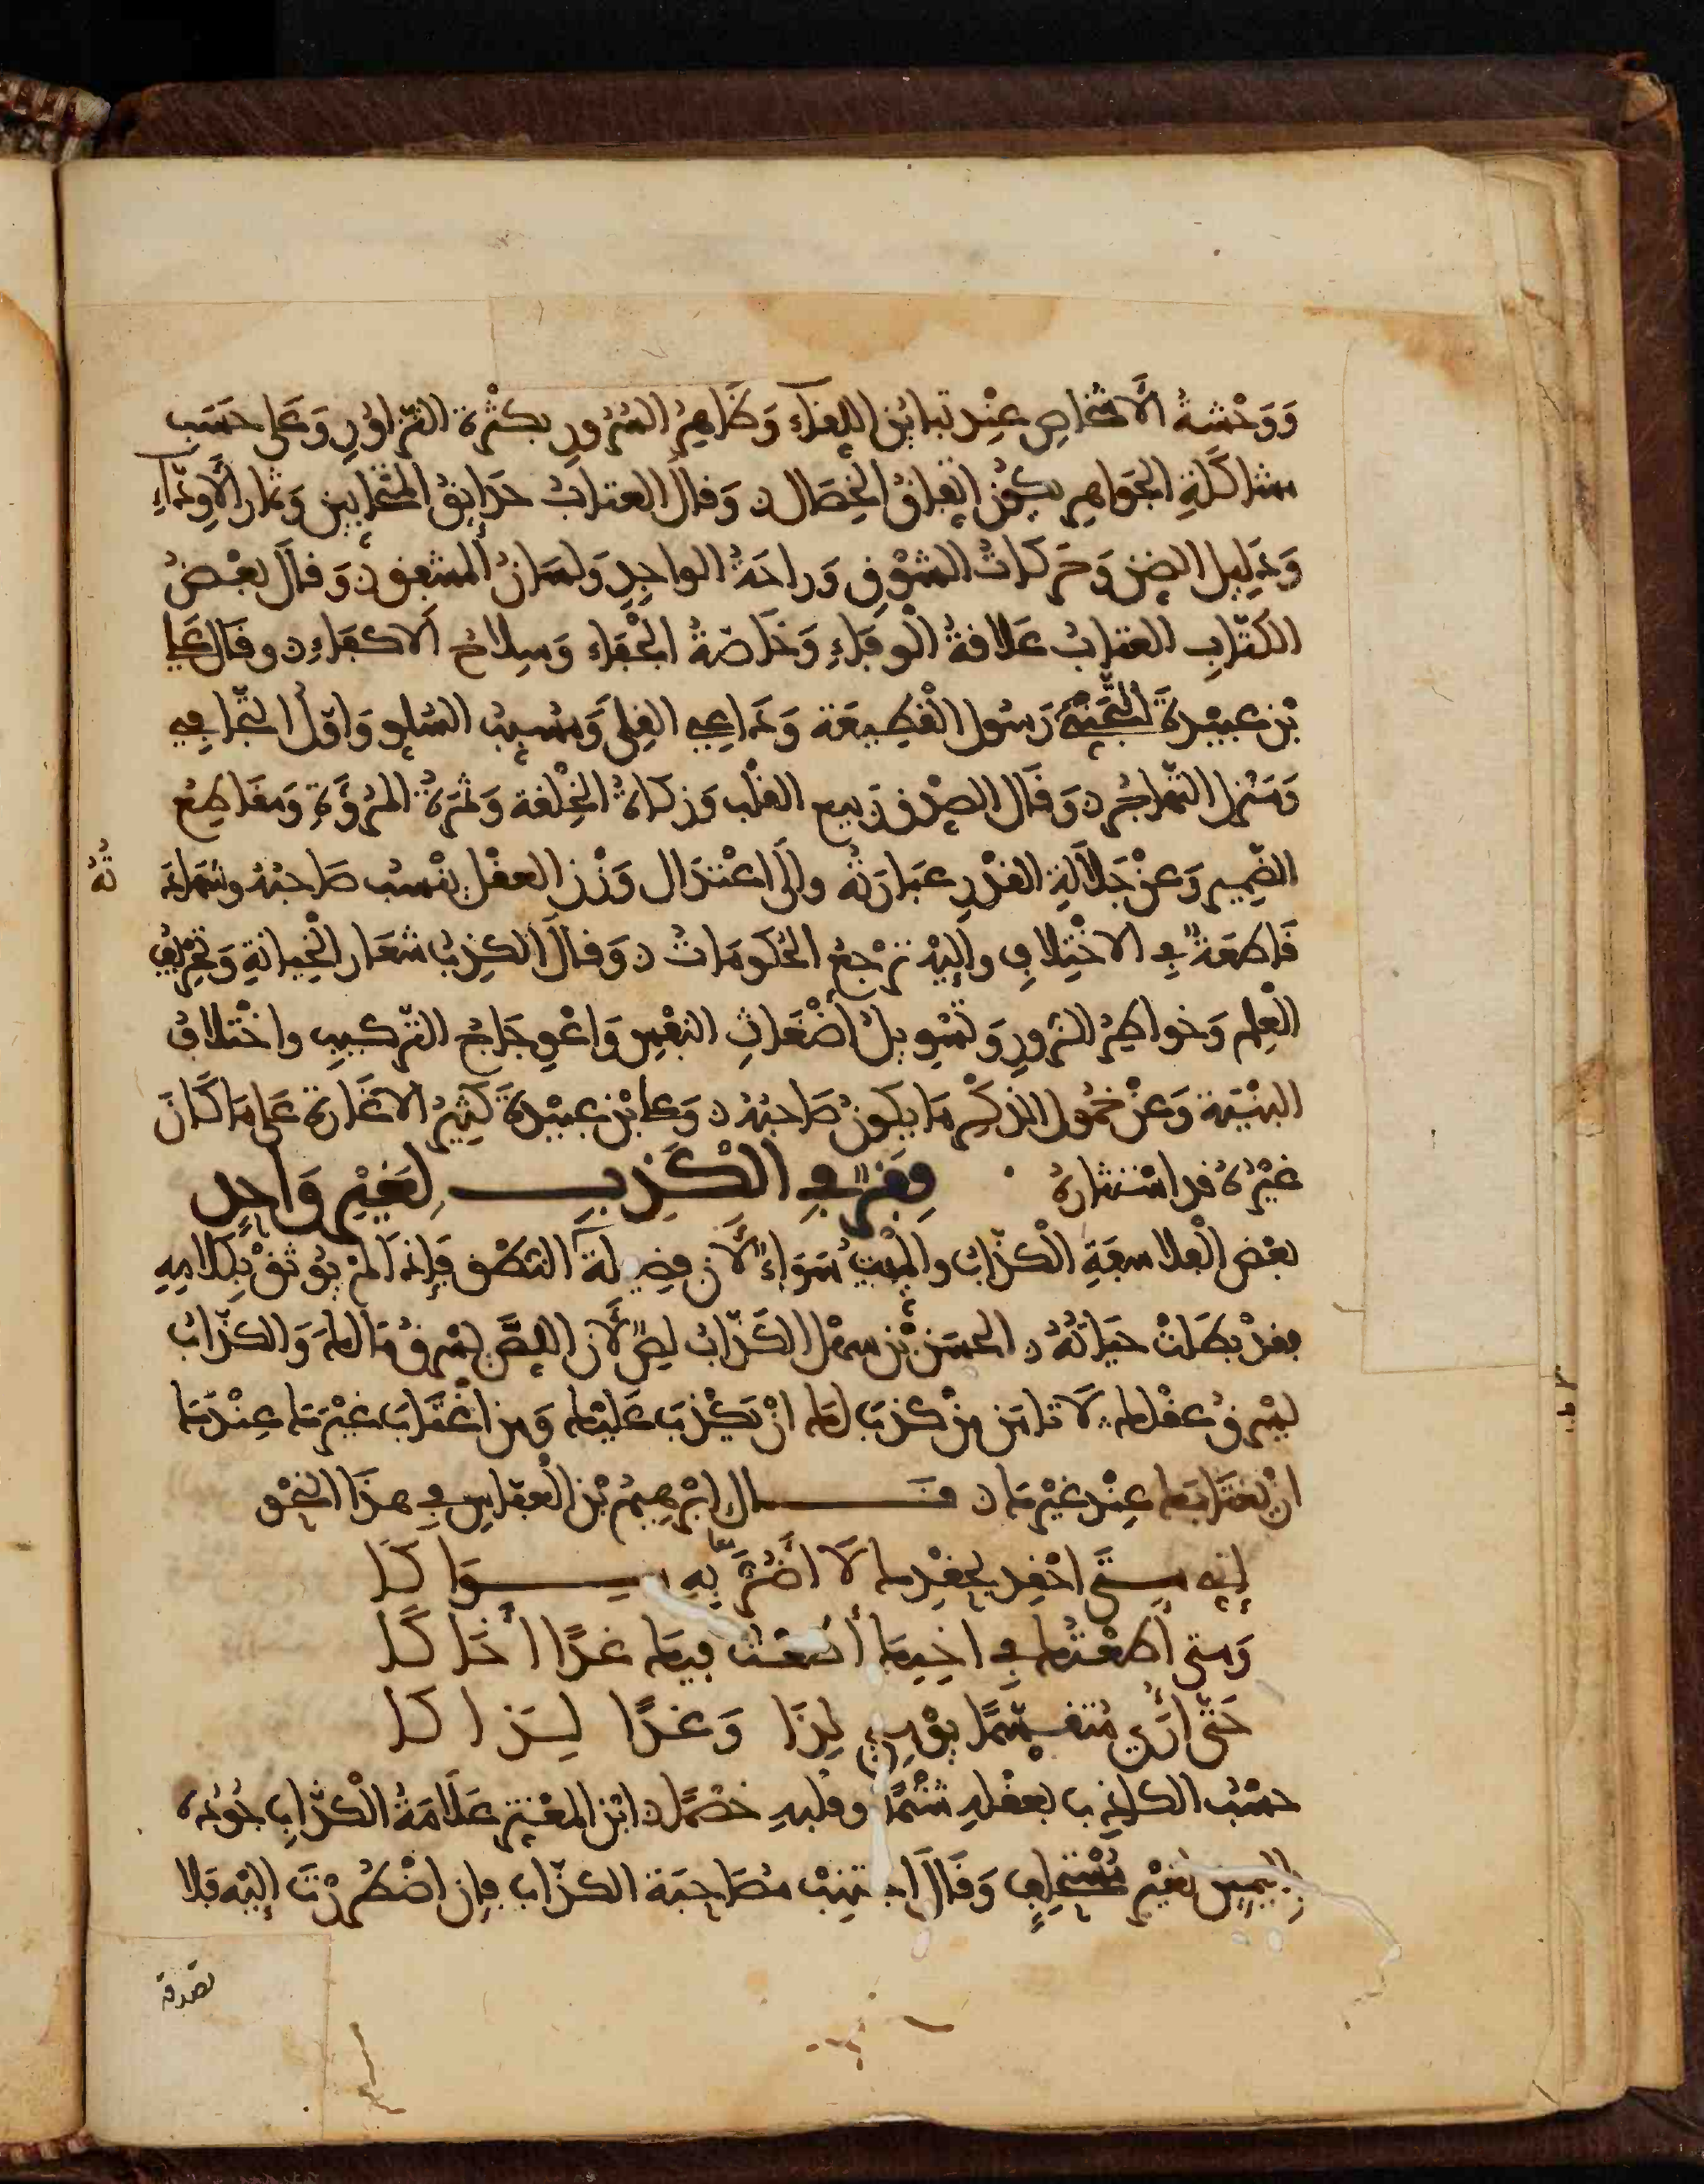 وَوَحْشَةُ الأَشْخَاصِ عِنْدَ تَبَايُنِ اللِّقَاءِ وَظَاهِرُ السُّرُورِ بِكَثْرَةِ التَّزَاوُرِ وَعَلَى حَسَبِ
مشاكَلَةِ الجَوَاهِرِ يَكُونُ اتِّفَاقُ الخِصَالِ وَقَالَ العِتَابُ حَدَائِقُ المُتَحَابِينَ وَثِمَار الأَوِدَّاءِ
وَدَلِيل الضن وَحَرَكَاتُ الشَّوْقِ وَرَاحَةُ الوَاجِدِ وَلِسَانُ المُشْفِقِ وَقَالَ بَعْضُ
الكُتَّابِ العِتَابُ عَلَاقَةُ الوَفَاءِ وَخَاصَّةُ الجَفَاءِ وَسِلَاحُ الأَكْفَاءِ وَقَالَ عَلِي
بْنُ عُبَيْدَةَ التَّجَنِّي رَسُولُ القَطِيعَةِ وَدَاعِي القِلَى وَسَبَبُ السُّلُو وَأَوَّلُ التَّجَافِي
وَمَنْزِل التَّهَاجُرِ وَقَالَ الصِّدْق رَبِيع القَلْب وَزَكَاةُ الخِلْقَة وَثَمَرَةُ المُرُوَّةِ وَشَعَاع
الضَّمِيرِ وَعَنْ جَلَالَةِ القَدْرِ عِبَارَتُه وَإِلَى اعْتِدَالِ وَزْنِ العَقْلِ يُنْسَبُ صَاحِبُهُ وَشَهَادَ تُهُ
قَاطِعَةٌ فِي الاخْتِلَافِ وَإِلَيْهِ تَرْجِعُ الحُكُومَاتُ وَقَالَ الكَذِبُ شِعَار الخِيَانَةِ وَتَحْرِيفُ
العِلْمِ وَخَوَاطِرُ الزُّورِ وَتَسْوِيلُ أَضْغَاثِ النَّفْسِ وَاعْوِجَاجُ التَّرْكِيبِ وَاخْتِلَافُ
البِنْيَةِ وَعَنْ خُمُولِ الذِّكْرِ مَا يَكُونُ صَاحِبُهُ وَكَانَ ابْنُ عُبَيْدَةَ كَثِيرُ الاغَارَةِ عَلَى مَا كَانَ
غَيْرُهُ قَد اسْتَثَارَهُ فِقَرٌ فِي الكَذِبِ لِغَيْرِ وَاحِد
بَعْض الفَلَاسِفَةِ الكَذَّابُ وَالمَيِّتُ سَوَاءٌ لأَنَّ فَضِيلَةَ النُّطْقِ فَإِذَا لَمْ يُوثَقْ بِكَلَامِهِ
فَقَدْ بَطَلَتْ حَيَاتُهُ الحَسَنُ بْنُ سَهْل الكَذَّابُ لِصٌّ لأَنَّ اللِّصَّ يَسْرِقُ مَالَكَ وَالكَذَّابُ
يَسْرِقُ عَقْلَكَ لَا تَامَن مَنْ كَذَبَ لَكَ أَنْ يَكْذِبَ عَلَيْكَ وَمَنْ اغْتَابَ غَيْرَكَ عِنْدَكَ
أَنْ يَغْتَابَكَ عِنْدَ غَيْرِكَ قَــال ابْرَهِيمُ بْنُ العَبَّاسِ فِي هَذَا النَّحْوِ
إِنِّي مَتَى احْقِد بِحِقْدِكَ لَا أَضُرُّ بِهِ سِوَاكَا
وَمَتَى أَطَعْتُكَ فِي اخِيكَ أَطَعْتُ فِيكَ غَدًا أَخَاكَا
حَتَّى أُرَى مُتَقَسِّمًا يَوْمِي لِذَا وَغَدًا لِذَاكَا
حَسْبُ الكَاذِبِ بِعَقْلِهِ شَتْمًا وَقَلْبِهِ خَصْمًا ابْنُ المُعْتَزِّ عَلَامَةُ الكَذَّابِ جُودُهُ
بِاليَمِينِ لِغَيْرِ مُسْتَحْلِفٍ وَقَالَ اجْتَنِبْ مُصَاحَبَةَ الكَذَّابِ فَإِنِ اضْطُرِرْتَ إِلَيْهِ فَلَا
تصدقه